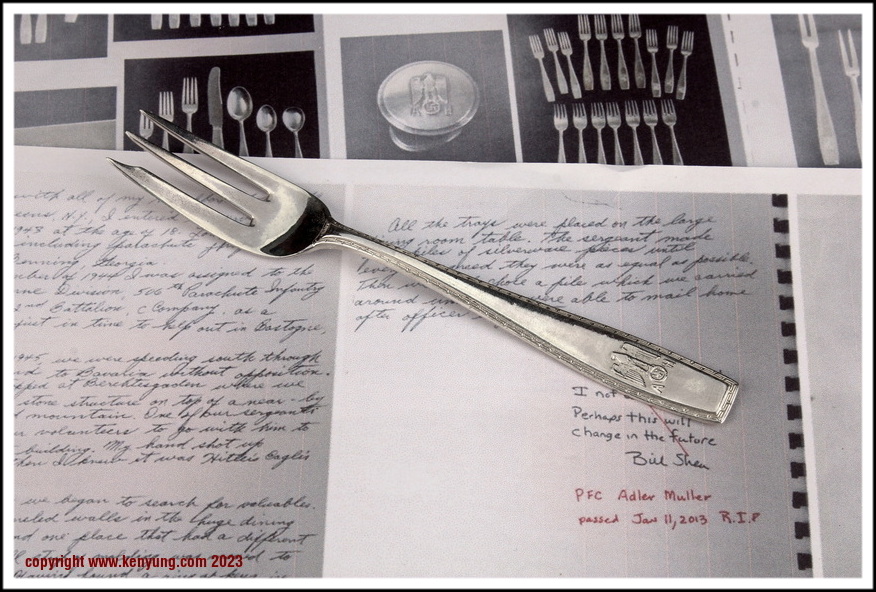 with all of my
N.Y., I entered
1943 at the age of 18.
including parachute
Benning, Georgia.
of 1944 I was assigned to the
Division, 506th Parachute Infantry
2nd Battalion, C Company, as a
just in time to help out in Bastogne,
1945 we were speeding south through
to Bavaria without opposition.
at Berchtesgaden where we
stone structure on top of a near-by
mountain. One of our sergeants
volunteers to go with him to
building. My hand shot up
I knew it was Hitler's Eagle's
we began to search for valuables.
walls in the huge dining
one place that had a different
to
All the trays were placed on the large
room table. The sergeant made
piles of silverware pieces until
they were as equal as possible.
a pile which we carried
around were able to mail home
after officers
I not
Perhaps this will
change in the future
Bill Shea
PFC Adler Muller
passed Jan 11, 2013 R.I.P
A H
copyright www.kenyung.com 2023